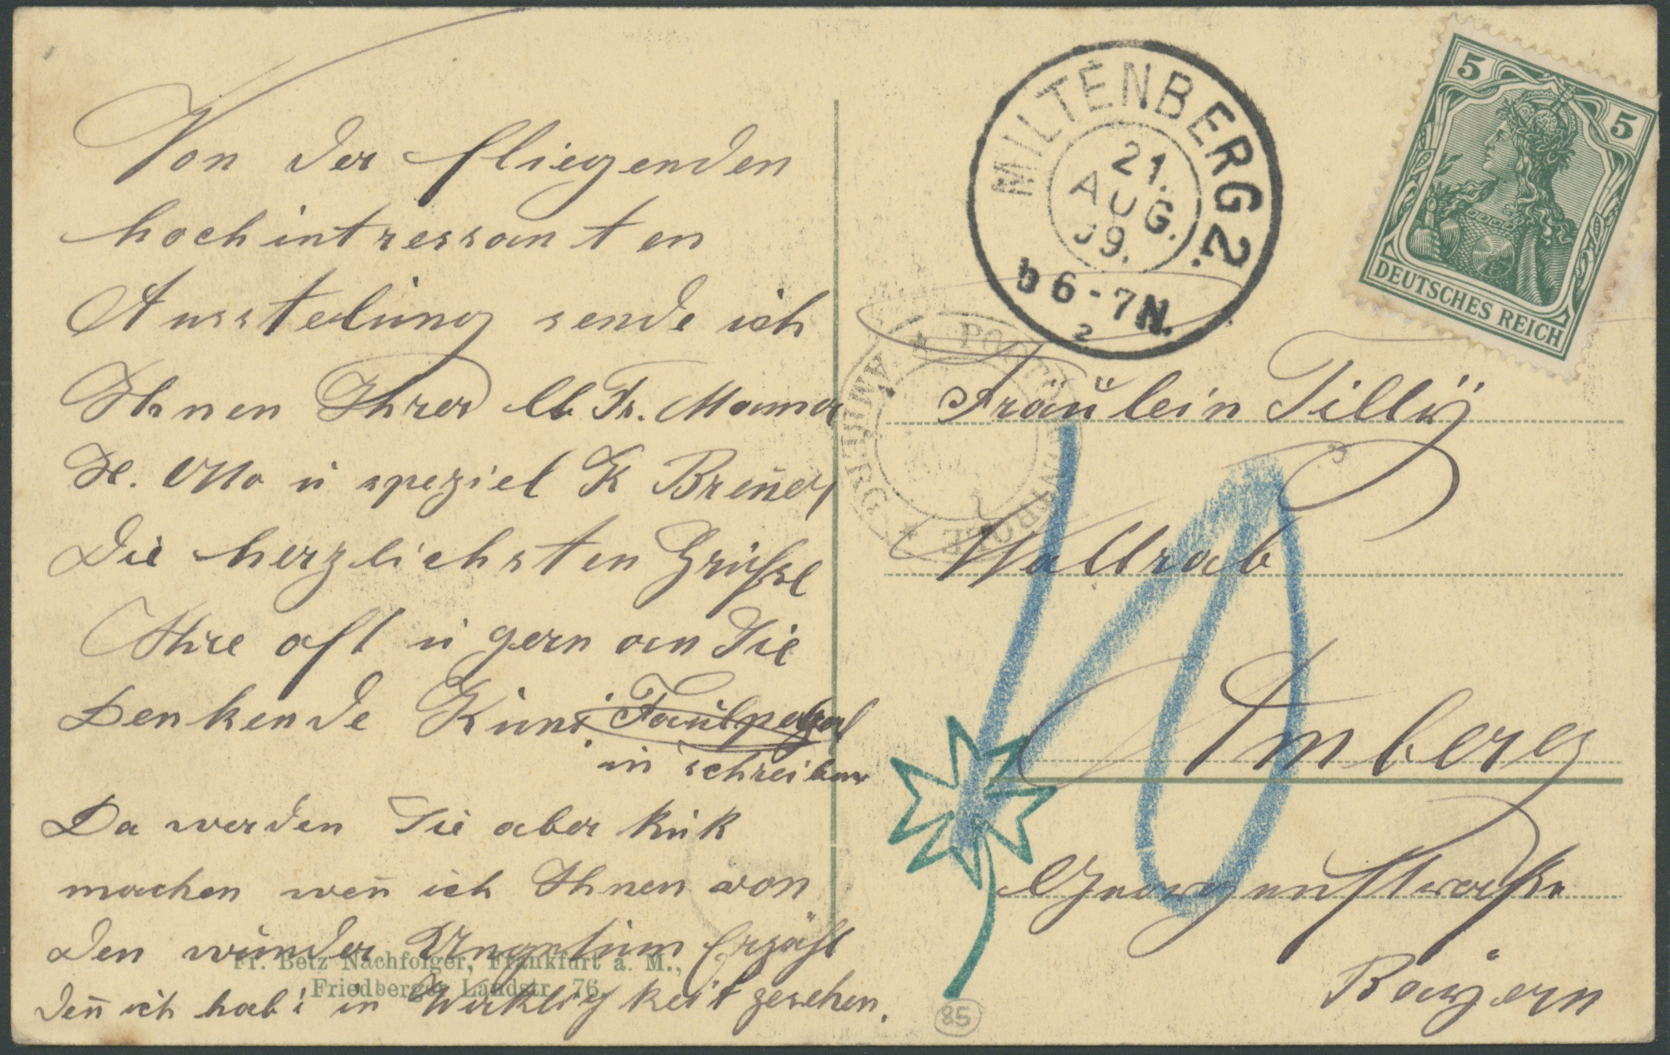 Von der fliegenden
hochintressanten
Ausstelung sende ich
Ihnen Ihrer lb Fr. Mama
H. Otto u speziel K Breñer
Die herzlichsten Grüße
Ihre oft u gern an Sie
Denkende Kuni Faulpelzal
in schreiben
Da werden Sie aber kuk
machen weñ ich Ihnen von
den wunder Ungetüm Erzähl
deñ ich hab's in Wirkligkeit gesehen.
Fr. Betz Nachfolger, Frankfurt a. M.,
Friedberger Landstr. 76.
MILTENBERG 2.
21.
AUG.
09.
b 6-7N.
2
5
5
DEUTSCHES REICH
AMBERG
Fräulein Tilly
Wallrab
Amberg
Georgenstraße
Bayern
10
85